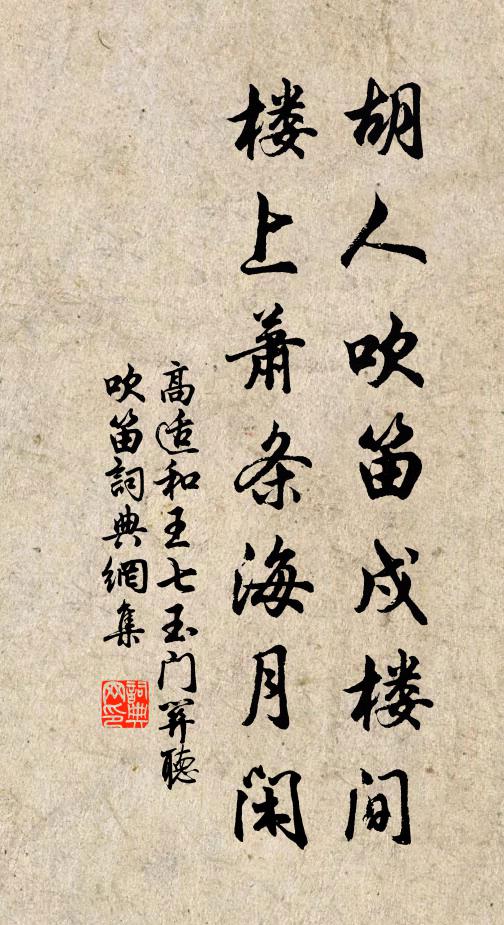 胡人吹笛戍楼间
楼上萧条海月闲
高适和王七玉门关聴
吹笛詞典網集
詞典網印